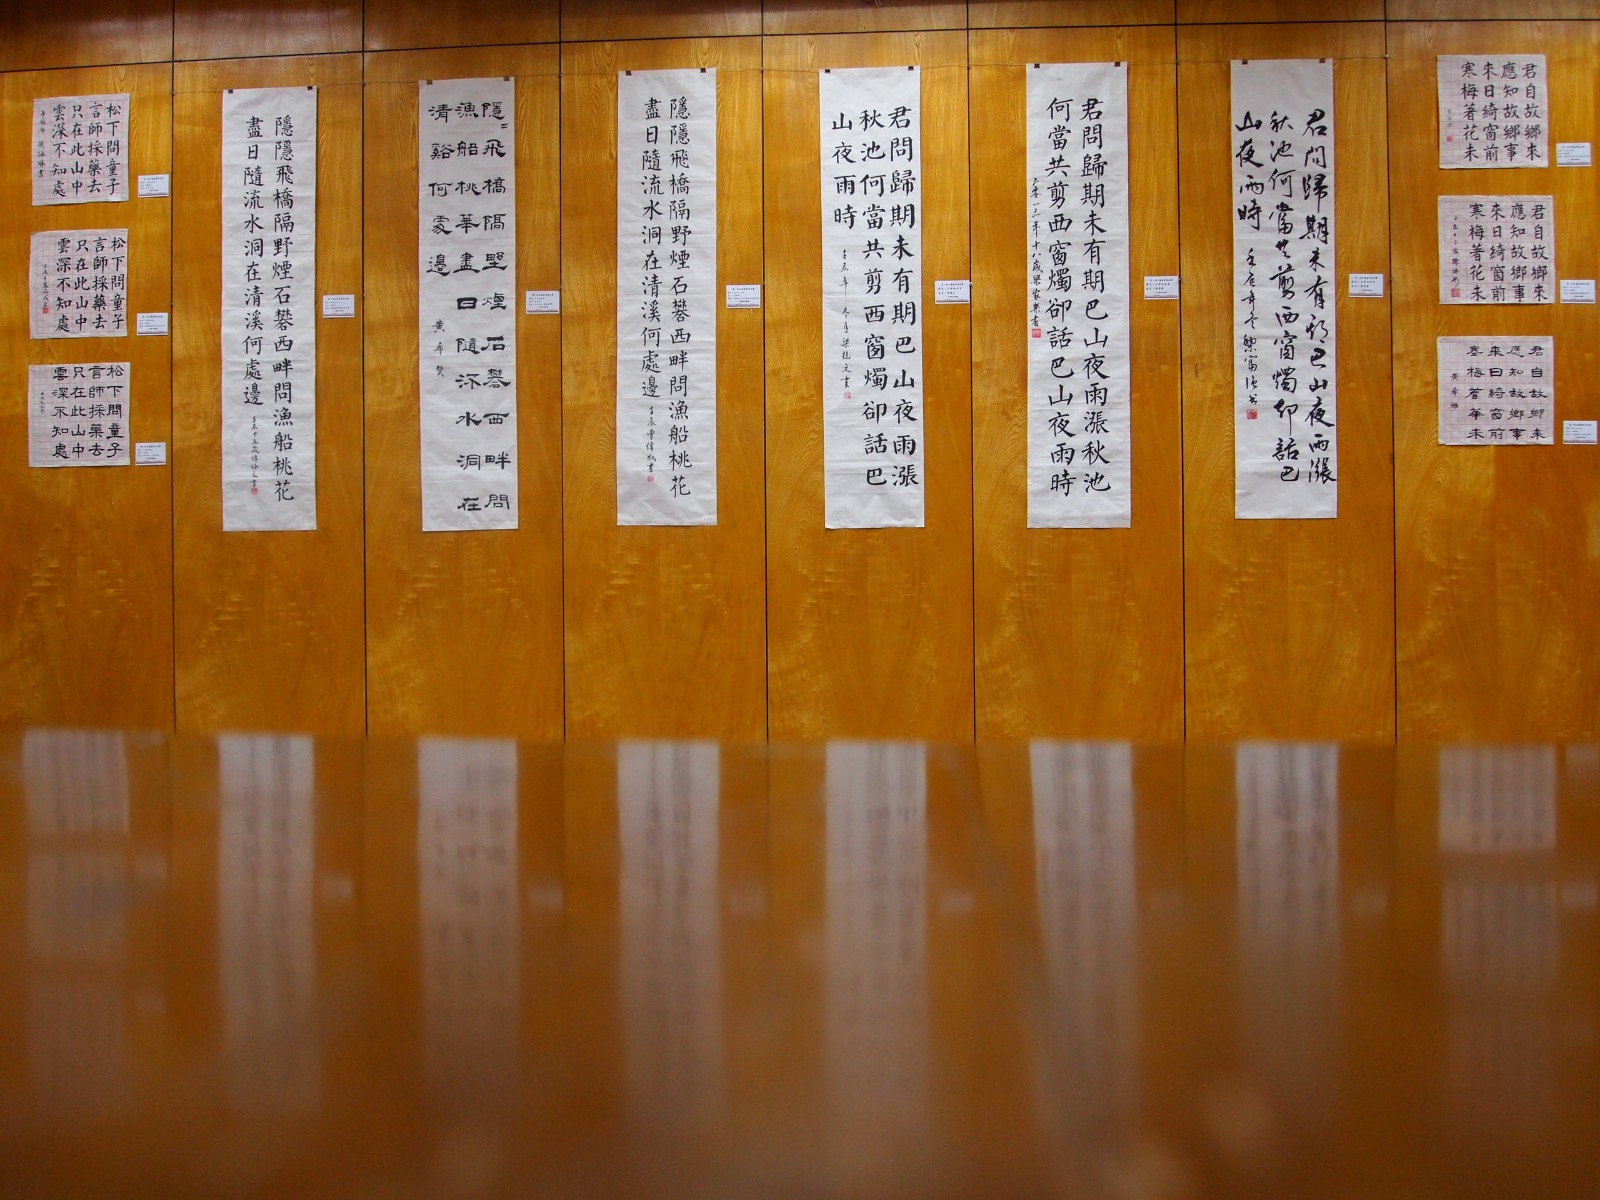 松下問童子
言師採藥去
只在此山中
雲深不知處
松下問童子
言師採藥去
只在此山中
雲深不知處
松下問童子
言師採藥去
只在此山中
雲深不知處
隱隱飛橋隔野煙石礬西畔問漁船桃花
盡日隨流水洞在清溪何處邊
隱〻飛橋隔野煙石礬西畔問
漁船桃華盡日隨流水洞在
清谿何處邊
黄希贊
隱隱飛橋隔野煙石礬西畔問漁船桃花
盡日隨流水洞在清溪何處邊
君問歸期未有期巴山夜雨漲
秋池何當共剪西窗燭卻話巴
山夜雨時
君問歸期未有期巴山夜雨漲秋池
何當共剪西窗燭卻話巴山夜雨時
二零一三年十八歲梁家樂書
君問歸期未有期巴山夜雨漲
秋池何當共剪西窗燭却話巴
山夜雨時
君自故鄉來
應知故鄉事
來日綺窗前
寒梅著花未
君自故鄉來
應知故鄉事
來日綺窗前
寒梅著花未
君自故鄉來
應知故鄉事
來日綺窗前
寒梅著華未